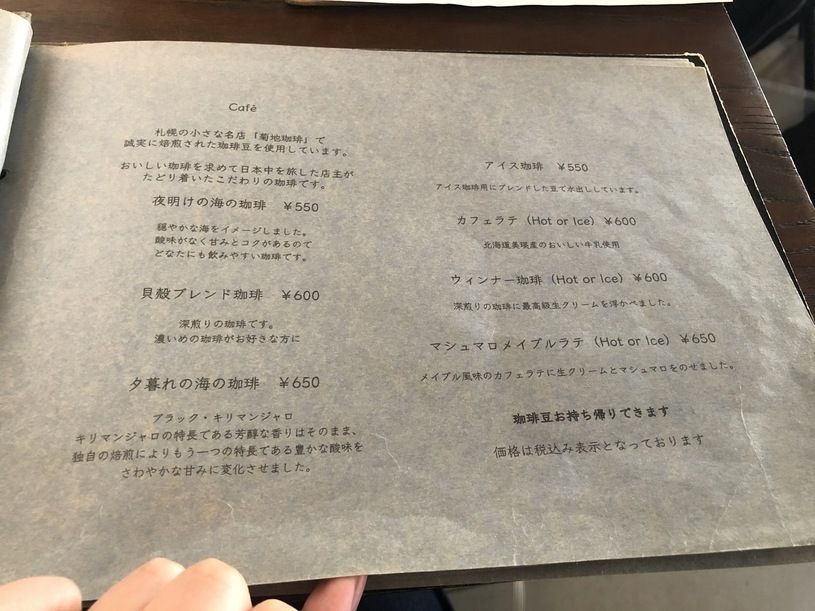 Café
札幌の小さな名店「菊地珈琲」で
誠実に焙煎された珈琲豆を使用しています。
おいしい珈琲を求めて日本中を旅した店主が
たどり着いたこだわりの珈琲です。
夜明けの海の珈琲 ￥550
穏やかな海をイメージしました。
酸味がなく甘みとコクがあるので
どなたにも飲みやすい珈琲です。
貝殻ブレンド珈琲 ￥600
深煎りの珈琲です。
濃いめの珈琲がお好きな方に
夕暮れの海の珈琲 ￥650
ブラック・キリマンジャロ
キリマンジャロの特長である芳醇な香りはそのまま、
独自の焙煎によりもう一つの特長である豊かな酸味を
さわやかな甘みに変化させました。
アイス珈琲 ￥550
アイス珈琲用にブレンドした豆で水出ししています。
カフェラテ（Hot or Ice）￥600
北海道美瑛産のおいしい牛乳使用
ウィンナー珈琲（Hot or Ice）￥600
深煎りの珈琲に最高級生クリームを浮かべました。
マシュマロメイプルラテ（Hot or Ice）￥650
メイプル風味のカフェラテに生クリームとマシュマロをのせました。
珈琲豆お持ち帰りできます
価格は税込み表示となっております